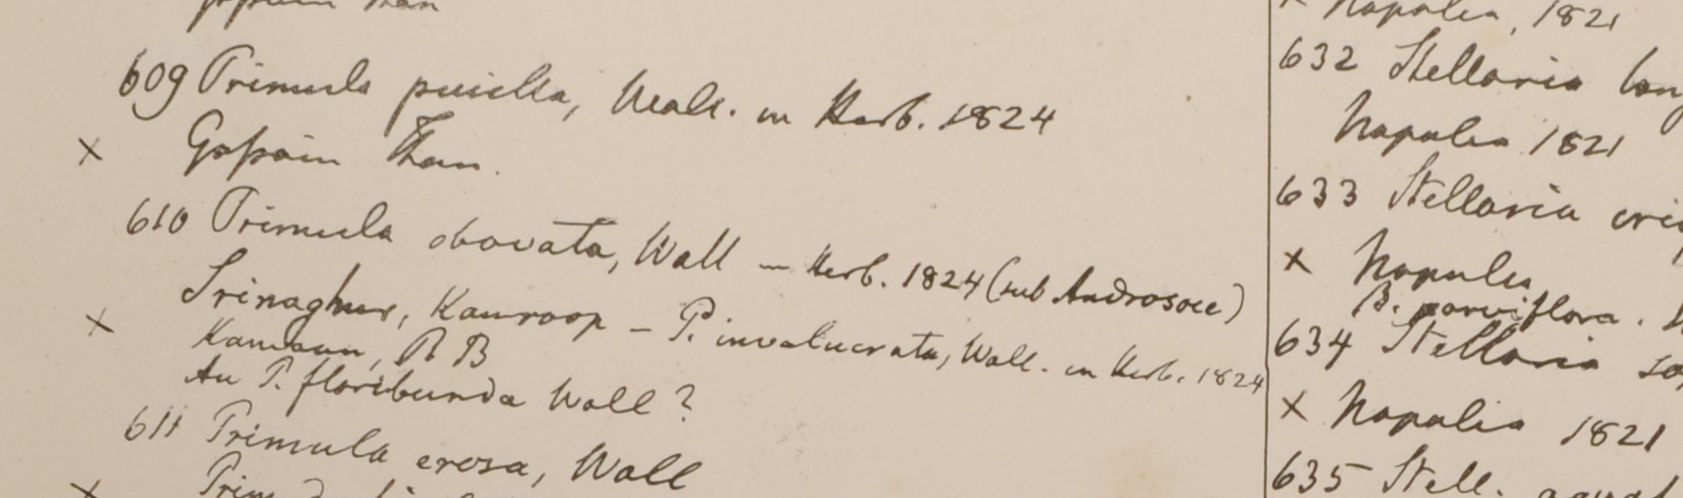 Gossain Than
609 Primula pusilla, Wall. in Herb. 1824
x Gossain Than.
610 Primula obovata, Wall in Herb. 1824 (sub Androsace)
Srinaghur, Kamroop - P. involucrata, Wall. in Herb. 1824
x Kamaon, R B
An P. floribunda Wall?
611 Primula erosa, Wall
x Prim
x Napalia, 1821
632 Stellaria
Napalia 1821
633 Stellaria
x Napalia
B. parviflora.
634 Stellaria
x Napalia 1821
635 Stell.